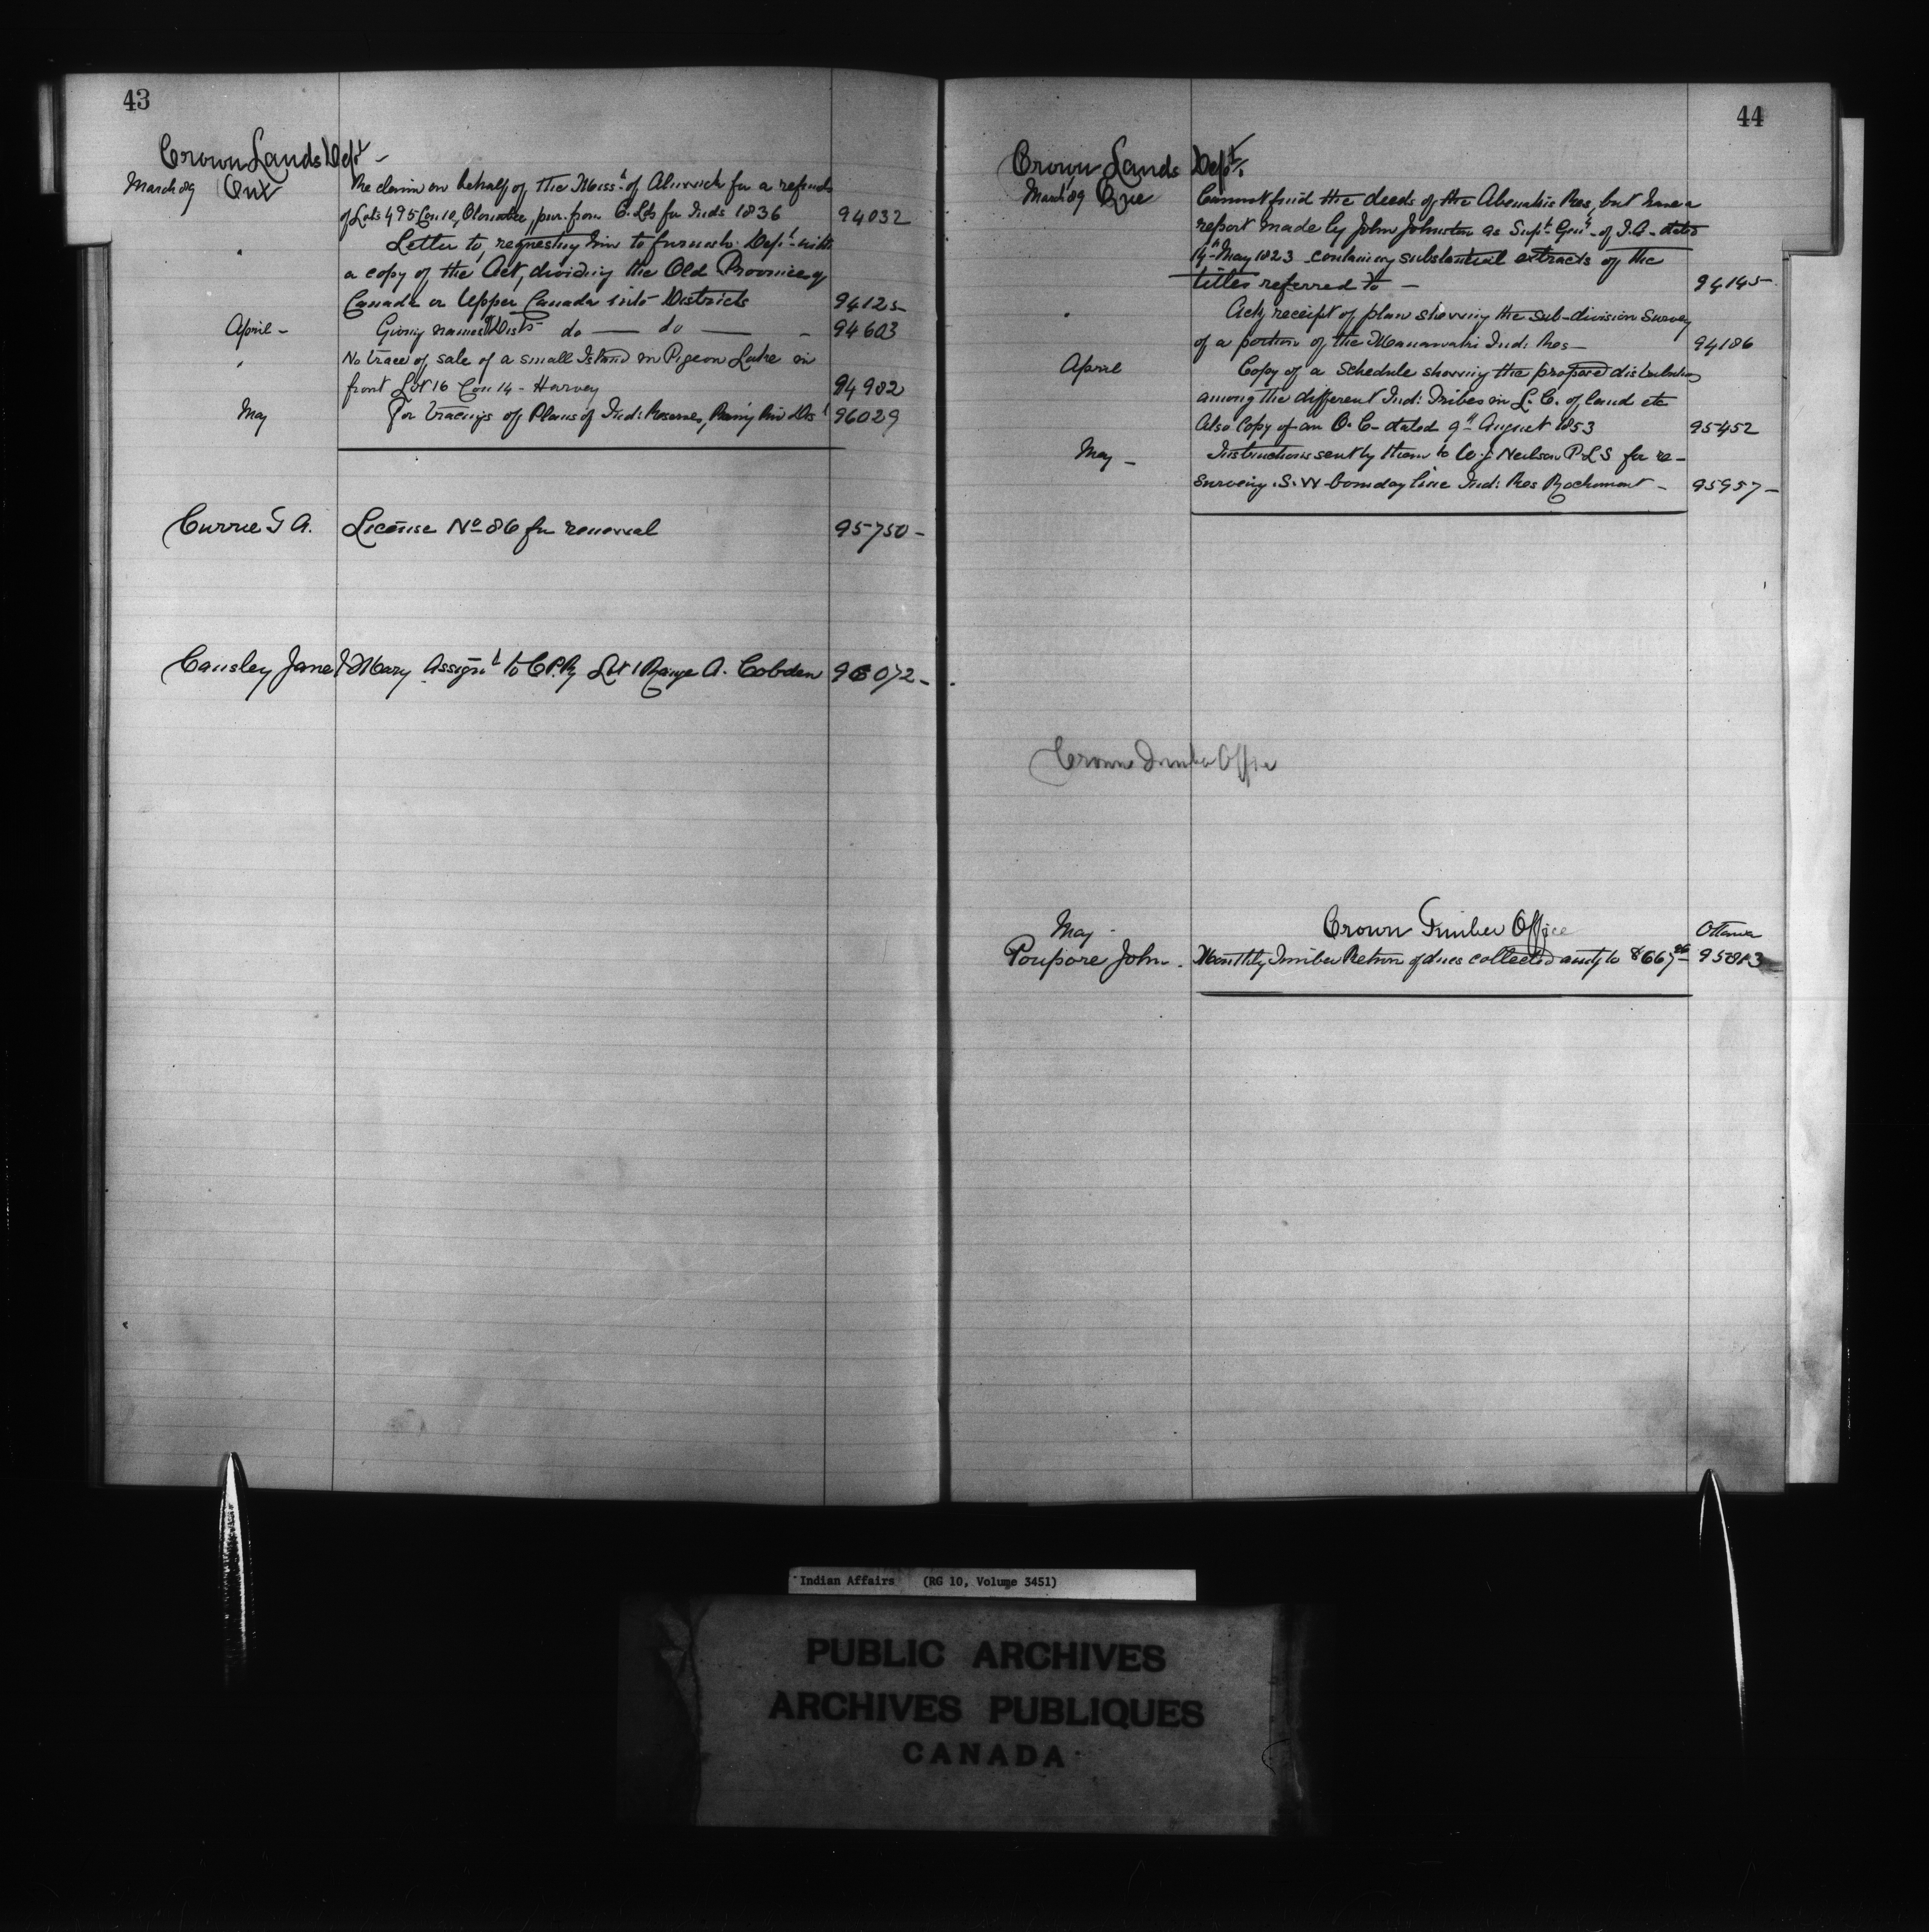 43
Crown Lands Dept -
March 89 Ont Re claim on behalf of the Miss. of Alnwick for a refund
of Lots 4 & 5 Con 10, Otonabee, pur. from C. Lds for Inds 1836 94032
" Letter to, requesting him to furnish Dept with
a copy of the Act, dividing the Old Province of
Canada or Upper Canada into Districts 94125
April - Giving names of Dists do — do — 94603
" No trace of sale of a small Island in Pigeon Lake in
front Lot 16 Con 14 - Harvey 94982
May For tracings of Plans of Ind: Reserves, Rainy Riv Dist 96029
Currie G A. License No 86 for renewal 95750 -
Causley Jane & Mary Assignt to C.P.Ry Lot 1 Range A. Cobden 96072 -
44
Crown Lands Dept.
March 89 Que Cannot find the deeds of the Abenakis Res, but have a
report made by John Johnston as Supt Genl of I.A. dated
14th May 1823 containing substantial extracts of the
titles referred to - 94145 -
" Ackg receipt of plan showing the sub-division survey
of a portion of the Maniwaki Ind: Res - 94186
April Copy of a Schedule showing the proposed distribution
among the different Ind: Tribes in L. C. of land etc
Also Copy of an O. C. dated 9th August 1853 95452
May - Instructions sent by them to Neilson P.L.S for re-
surveying S. W bounday line Ind: Res Rockmont - 95957 -
Crown Timber Office
May - Crown Timber Office Ottawa
Poupore John - Monthly Timber Return of dues collected amtg to 95813
Indian Affairs (RG 10, Volume 3451)
PUBLIC ARCHIVES
ARCHIVES PUBLIQUES
CANADA